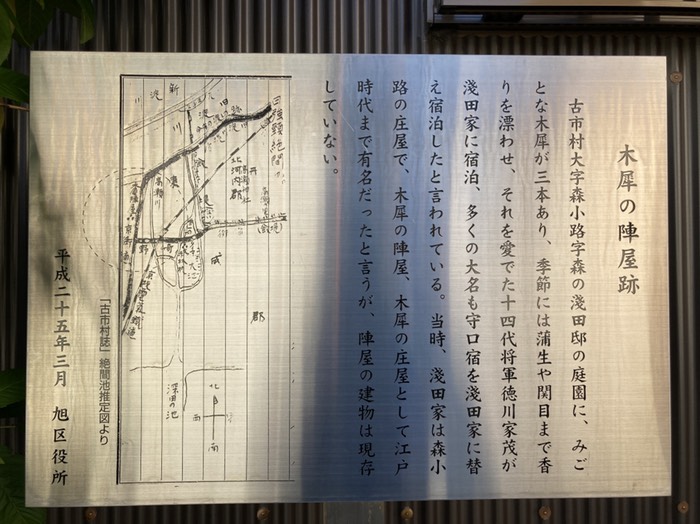 木犀の陣屋跡
古市村大字森小路字森の淺田邸の庭園に、みご
とな木犀が三本あり、季節には蒲生や関目まで香
りを漂わせ、それを愛でた十四代将軍徳川家茂が
淺田家に宿泊、多くの大名も守口宿を淺田家に替
え宿泊したと言われている。当時、淺田家は森小
路の庄屋で、木犀の陣屋、木犀の庄屋として江戸
時代まで有名だったと言うが、陣屋の建物は現存
していない。
新
淀
川
北河内郡
成
郡
深田の池
北
西
南
「古市村誌」絶間池推定図より
平成二十五年三月 旭区役所